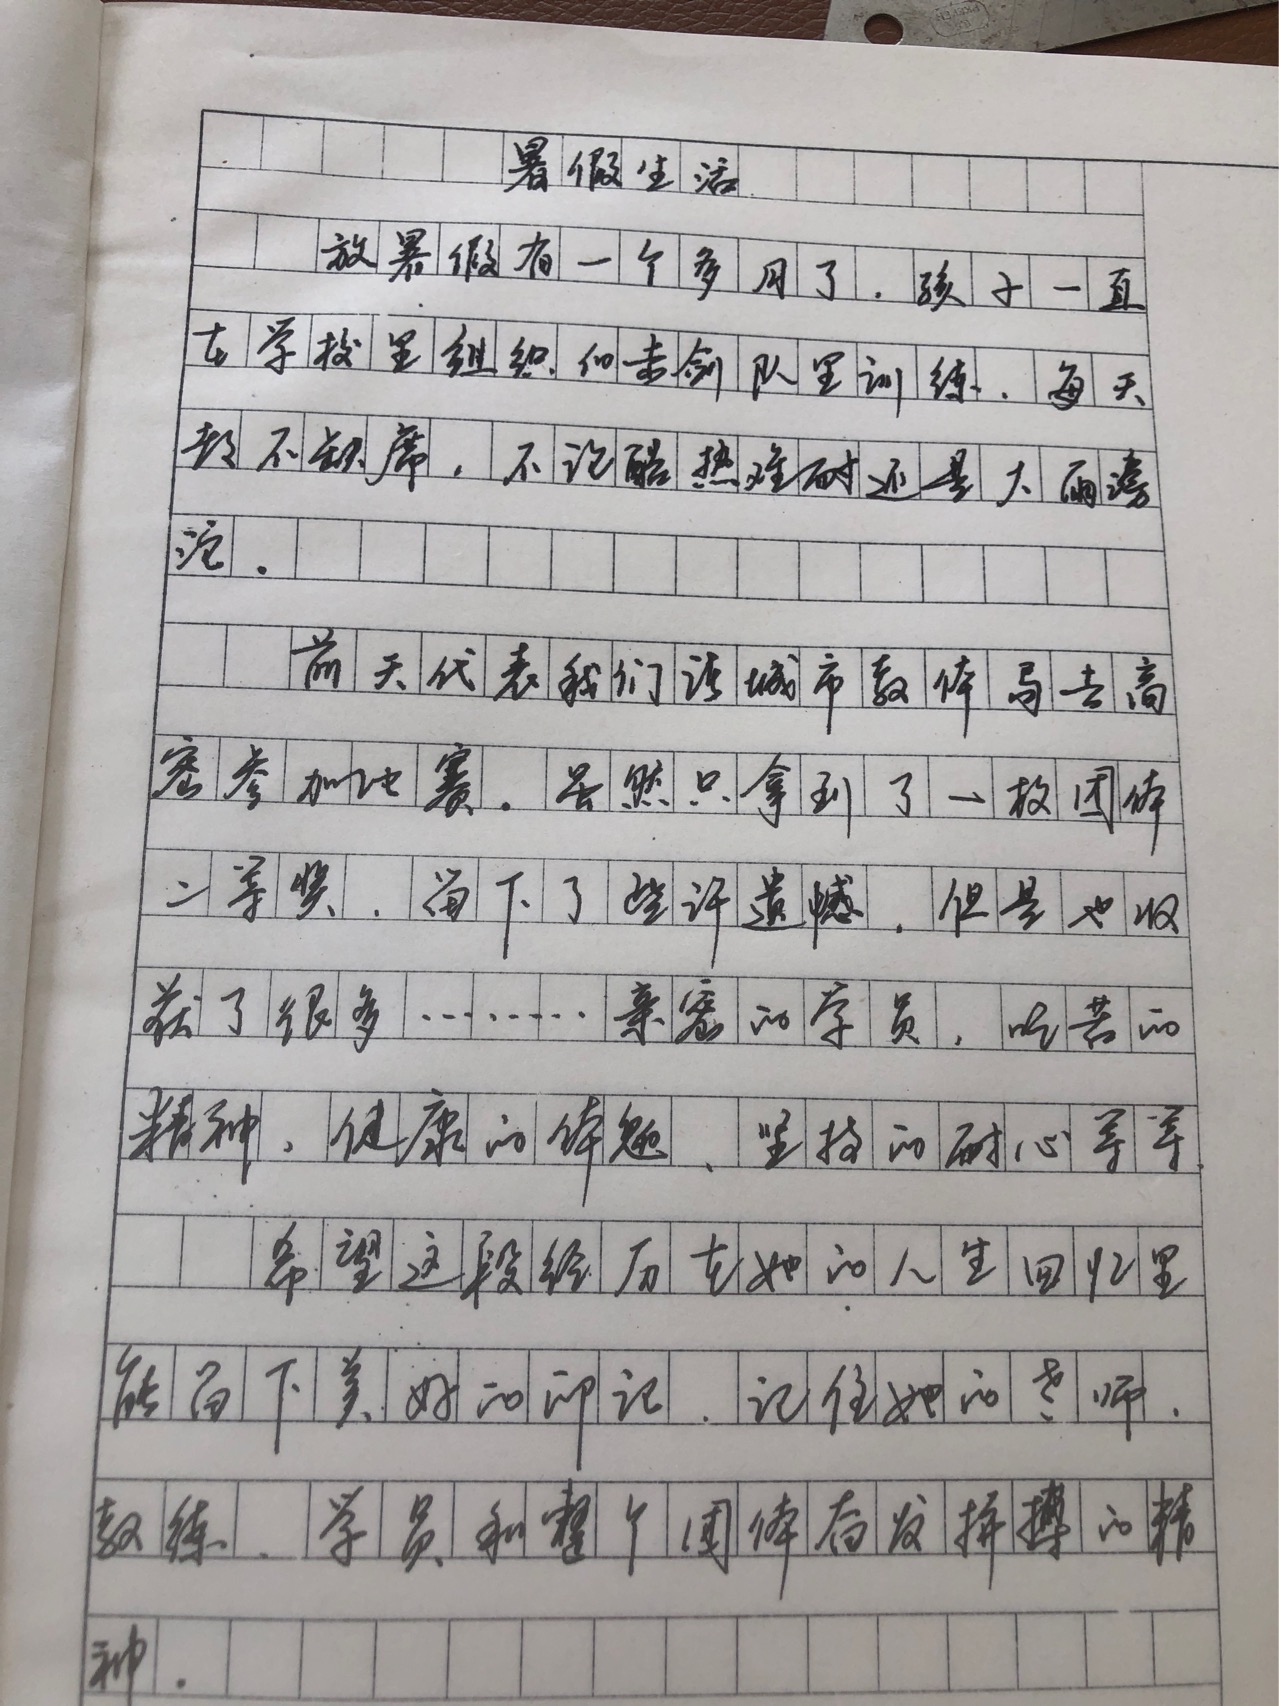 暑假生活
放暑假有一个多月了.孩子一直
在学校里组织的击剑队里训练.每天
都不缺席,不论酷热难耐还是大雨滂
沱.
前天代表我们诸城市教体局去高
密参加比赛.虽然只拿到了一枚团体
二等奖.留下了些许遗憾.但是也收
获了很多………亲密的学员,吃苦的
精神、健康的体魄、坚持的耐心等等.
希望这段经历在她的人生回忆里
能留下美好的印记.记住她的老师.
教练.学员和整个团体奋发拼搏的精
神.